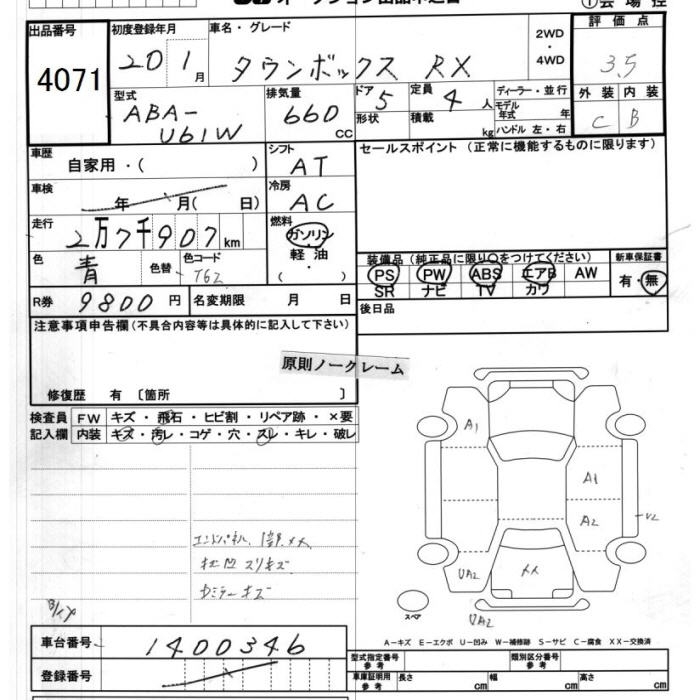 出品番号 初度登録年月 車名・グレード 2WD ・ 4WD 評価点
4071 20年 1月 タウンボックス RX 3.5
型式 ABA-U61W 排気量 660 CC ドア 5 形状 定員 4人 積載 kg ディーラー・並行 モデル年式 年 ハンドル 左・右 外装 C 内装 B
車歴 自家用・( ) シフト AT セールスポイント (正常に機能するものに限ります)
車検 年 月( 日) 冷房 AC
走行 2万7千907km 燃料 ガソリン・軽油・( )
色 青 色替 色コード T62
装備品 (純正品に限り○をつけてください) 新車保証書
PS PW ABS エアB AW 有・無
SR ナビ TV カワ
R券 9800円 名変期限 月 日 後日品
注意事項申告欄(不具合内容等は具体的に記入して下さい)
原則ノークレーム
修復歴 有 〔箇所 〕
検査員記入欄 FW キズ・飛石・ヒビ割・リペア跡・×要
内装 キズ・汚レ・コゲ・穴・スレ・キレ・破レ
A1
A1
A2
UA2 XX
UA2
スペア
A-キズ E-エクボ U-凹み W-補修跡 S-サビ C-腐食 XX-交換済
車台番号 1400346
登録番号
型式指定番号 参考 類別区分番号 参考
車庫証明用 参考 長さ cm 幅 cm 高さ cm